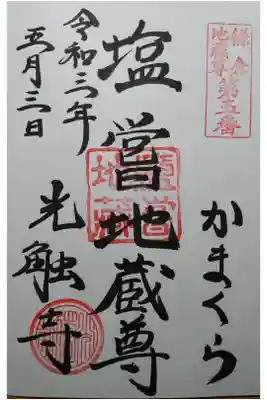 鎌倉
地蔵尊第五番
かまくら
塩嘗地蔵尊
鹽嘗
地蔵
令和三年
五月三日
光触寺